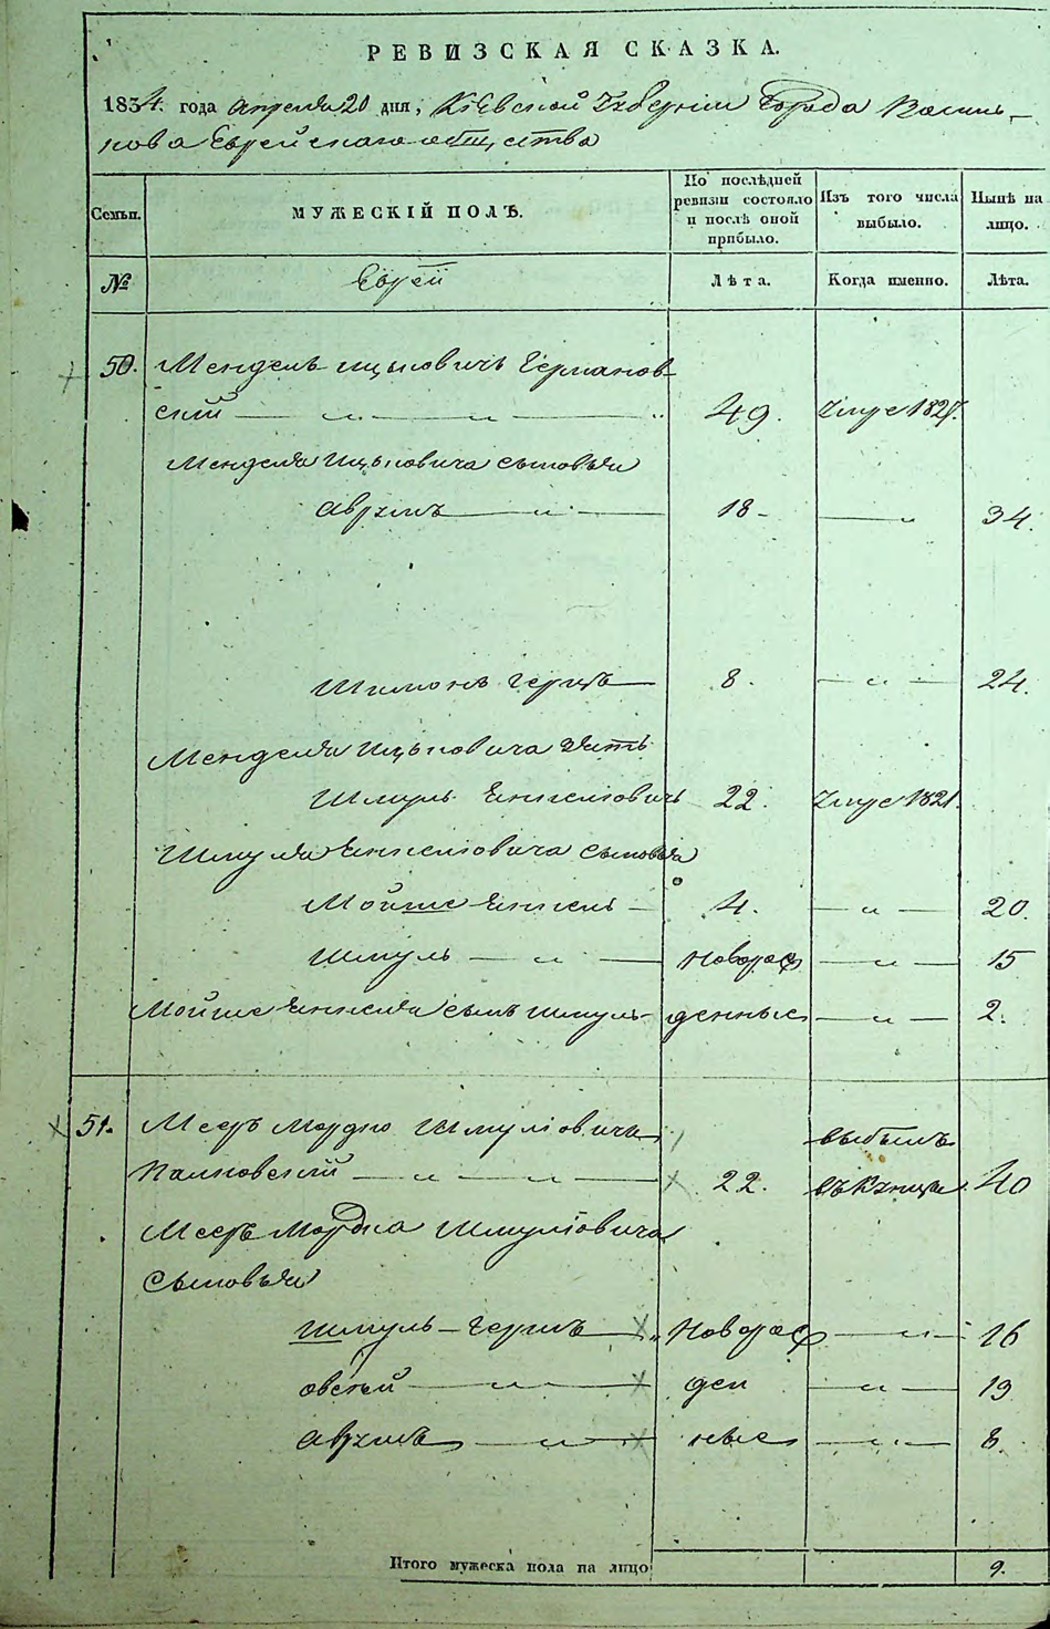 РЕВИЗСКАЯ СКАЗКА.
1834. года Апреля 20 дня, Кіевской Губерніи Города Василь-
кова Еврейскаго общества
Семьи.
МУЖЕСКІЙ ПОЛЪ.
По послѣдней ревизіи состояло и послѣ оной прибыло.
Изъ того числа выбыло.
Нынѣ на лицо.
№
Еврей
Лѣта.
Когда именно.
Лѣта.
50. Мендель Ицьковичъ Германов-
скій — „ — „ — „ 49. Умре 1827.
Менделя Ицьковича сыновья
Аврумъ — „ — 18 — „ 34.
Шимонъ Гершъ — 8. — „ — 24.
Менделя Ицьковича зять
Шмуль Енкелювичъ 22. Умре 1821.
Шмуля Енкелювича сыновья
Мойше Енкель — 4. — „ — 20.
Шмуль — „ — новорож — „ — 15
Мойше Енкеля сынъ Шмуль — денные — „ — 2.
51. Меєръ Мордко Шмулiовичъ
— „ — „ — 22. 40
Меєръ Мордка Шмулiовича
сыновья
Шмуль-Гершъ — „ Новорож — „ — 16
Овсѣй — „ — ден — „ — 13
Аврумъ — „ — ные — „ — 8.
Итого мужеска пола на лицо 9.